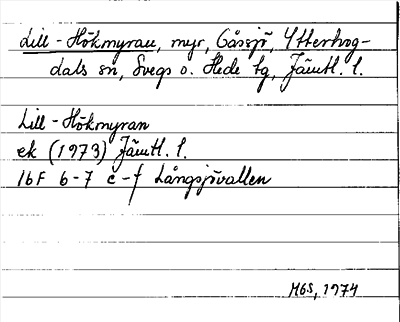 Lill-Hökmyran, myr, Gåssjö, Ytterhog-
dals sn, Svegs o. Hede tg, Jämtl. l.
Lill-Hökmyran
ek (1973) Jämtl. l.
16F 6-7 e-f Långsjövallen
MGS, 1974